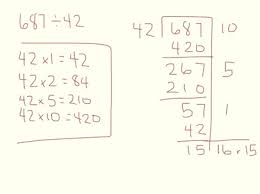 687 ÷ 42
42 × 1 = 42
42 × 2 = 84
42 × 5 = 210
42 × 10 = 420
42 687 10
420
267 5
210
57 1
42
15 16 r 15